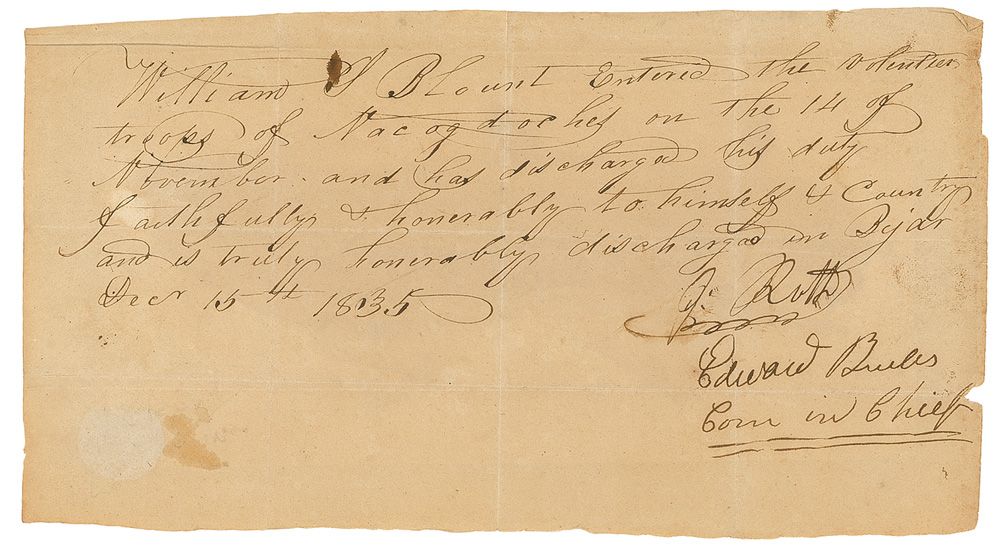 William S Blount Entered the volunteer
troops of Nacogdoches on the 14 of
November. and has discharged his duty
faithfully & honerably to himself & Country
and is truly honerably discharged in Bejar
Decr 15th 1835
J. Roth
Edward Burles
Com in Chief